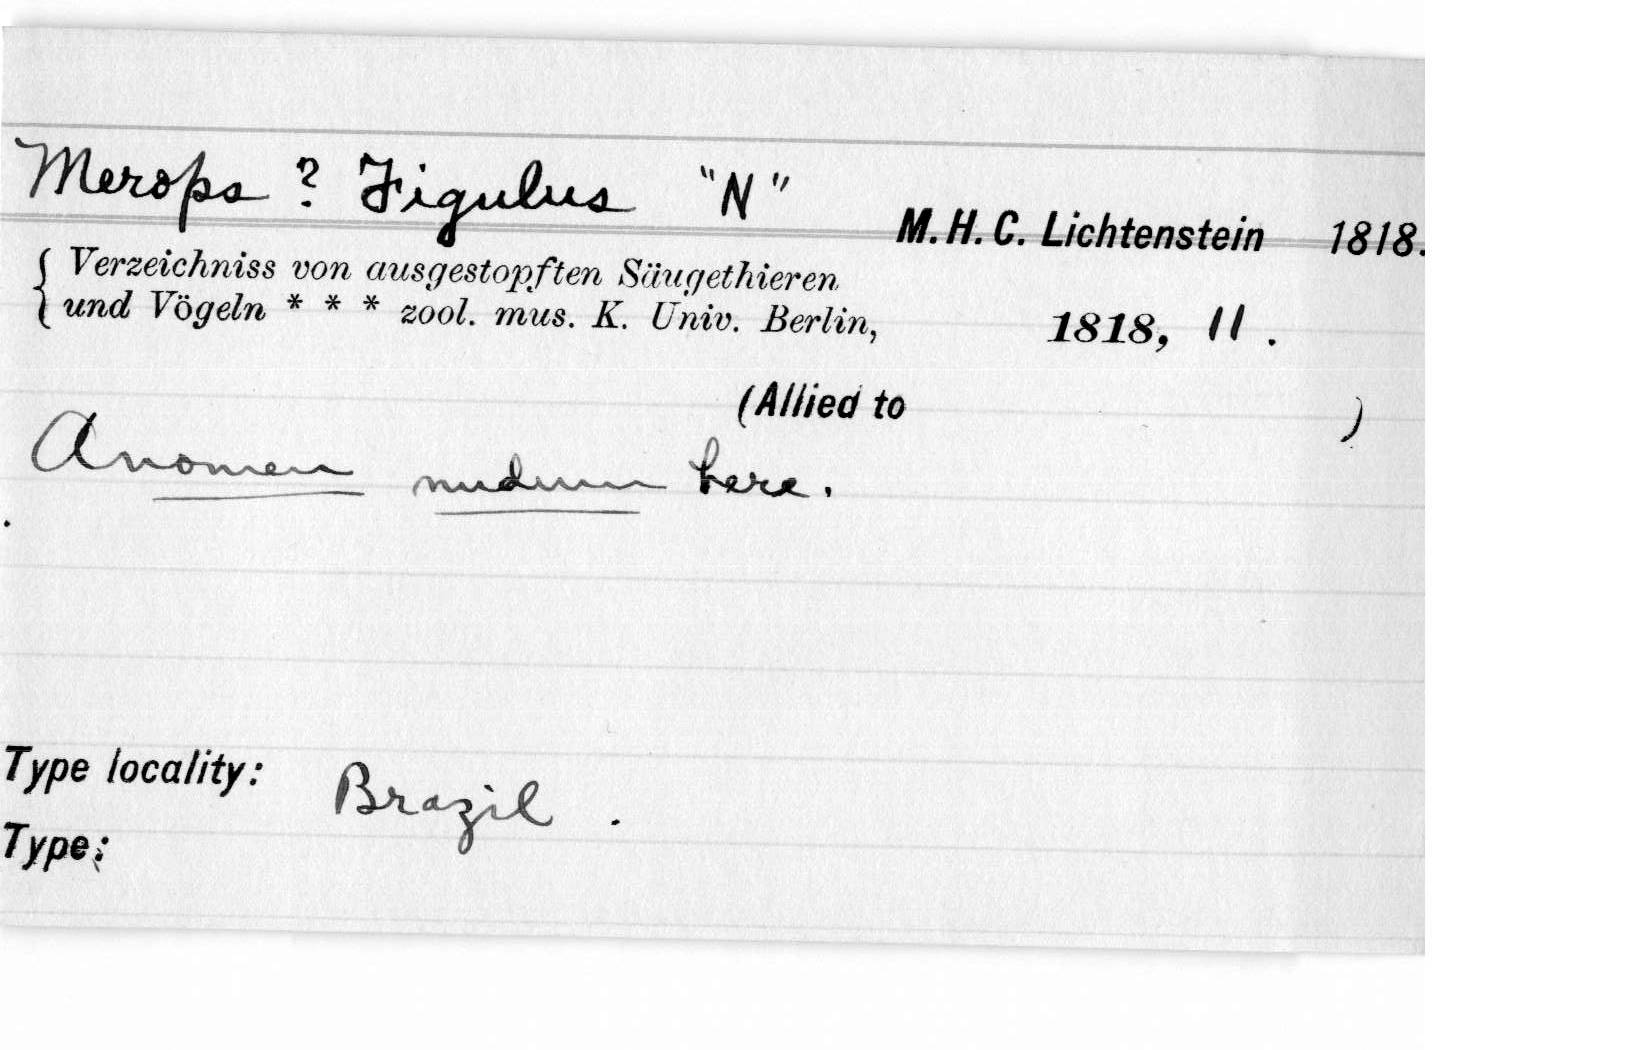 Merops ? Figulus "N"
M. H. C. Lichtenstein 1818.
Verzeichniss von ausgestopften Säugethieren
und Vögeln * * * zool. mus. K. Univ. Berlin, 1818, 11.
(Allied to )
A nomen nudum here.
Type locality: Brazil.
Type: